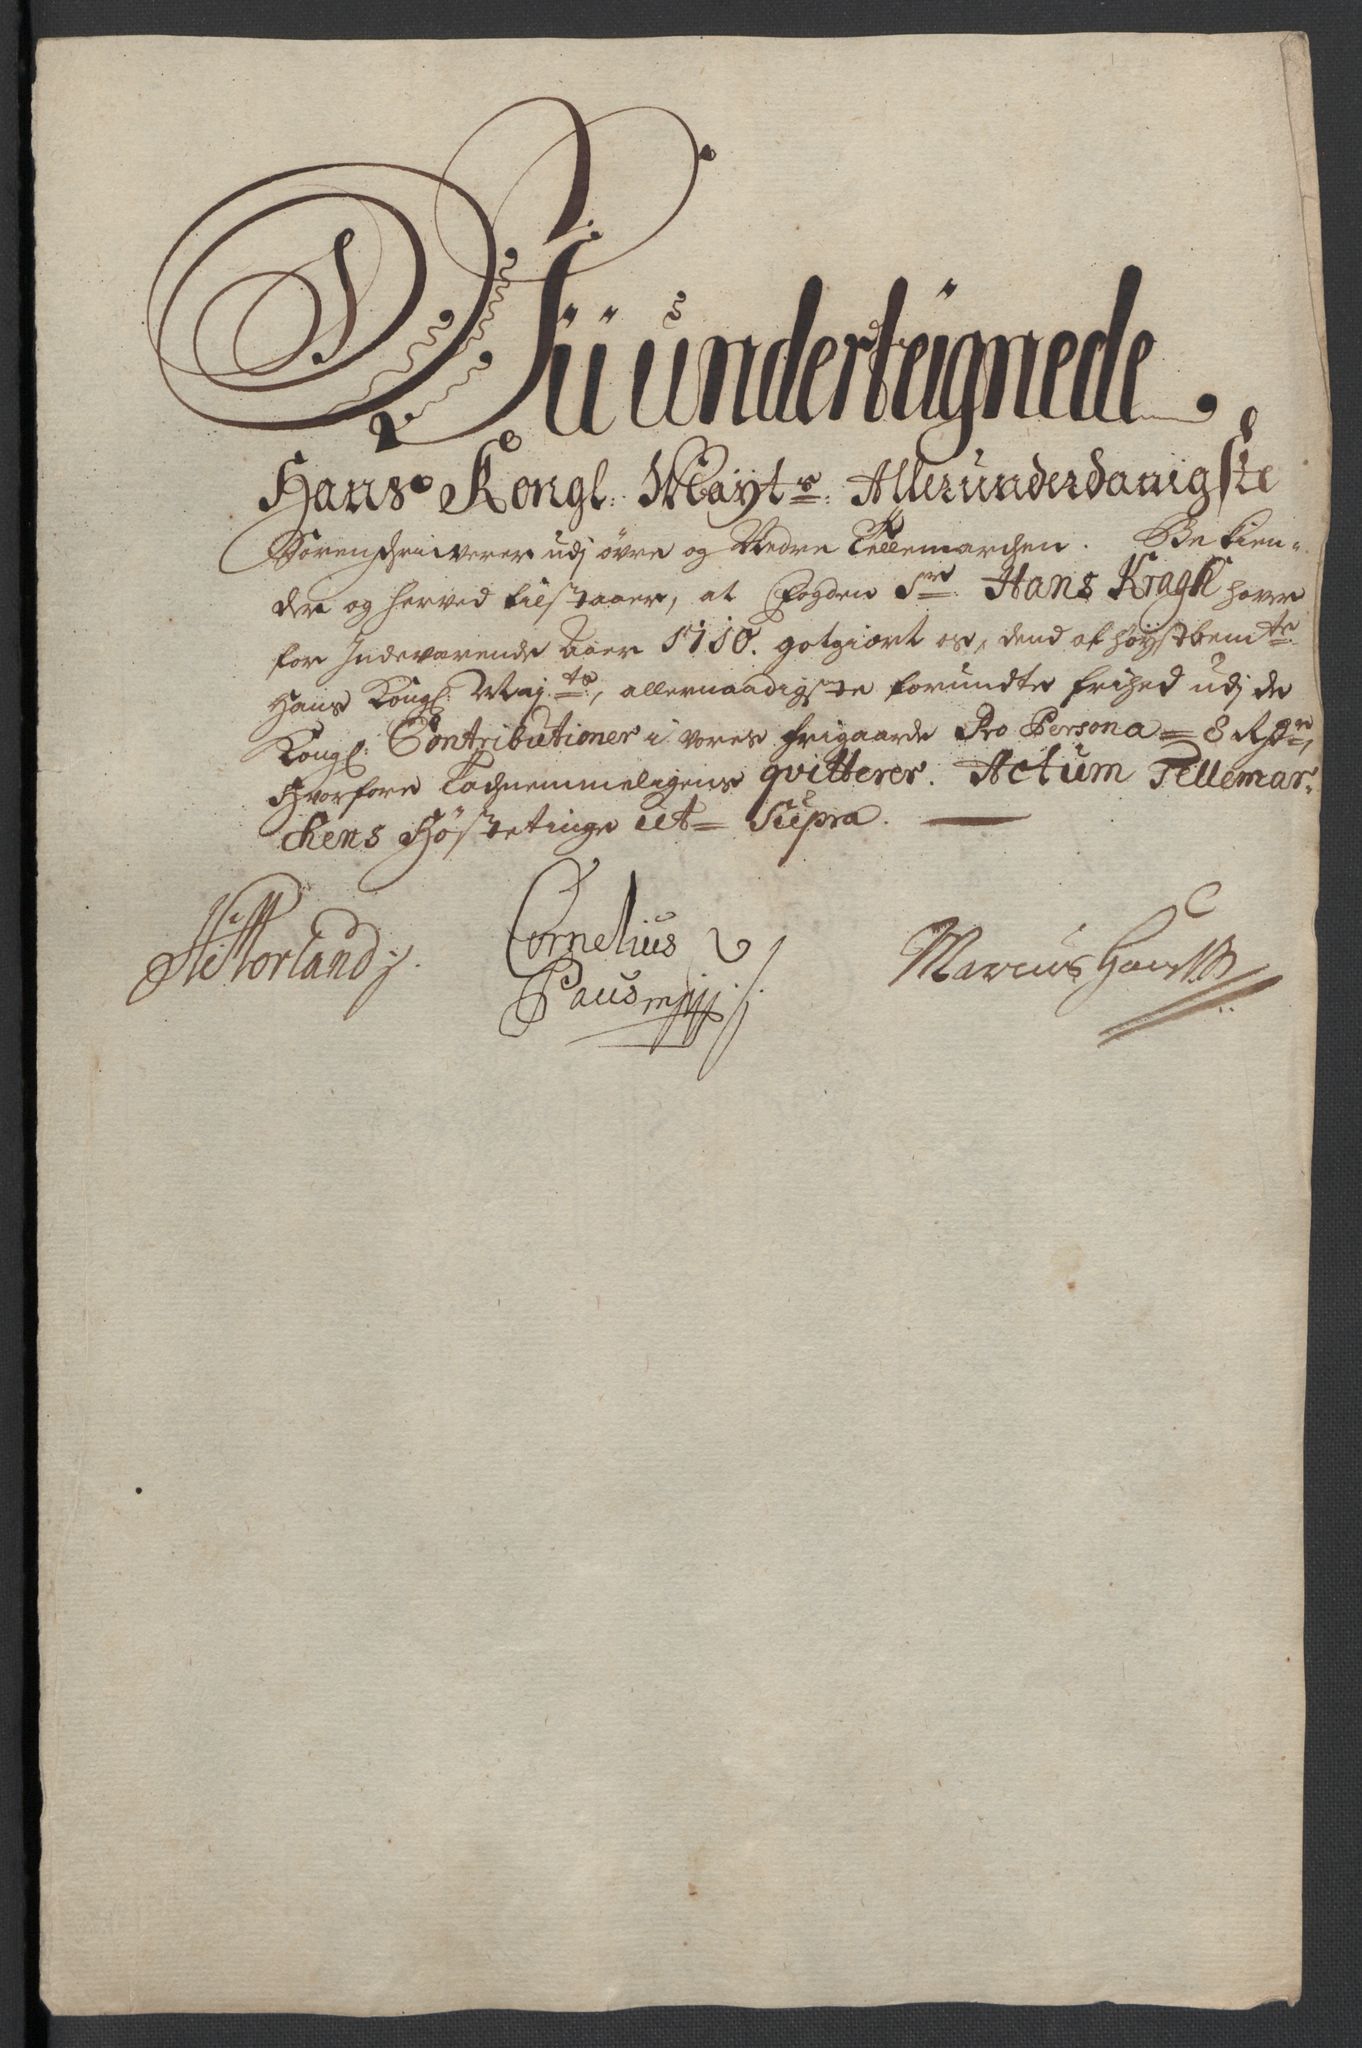 Wii underteignede
Hans Kongl: Mayts: Allerunderdanigste
Sorenschriwerer udj øvre og Nedre Tellemarchen. Bekien-
der og herved tilstaaer, at Fogden Sr: Hans Kragh hawer
for Indeværende aaer 1710. gotgiort os, dend af høystbemte:
Hans Kongl: Majts:, allernaadigste forundte frihed udj de
Kongl: Contributioner i vores frigaarde Pro Persona = 8 Rdr,
Hvorfore Tachnemmeligens qvitterer. Actum Tellemar-
chens Høstetinge ut Supra.
Cornelius
Paus mppp
Marcus